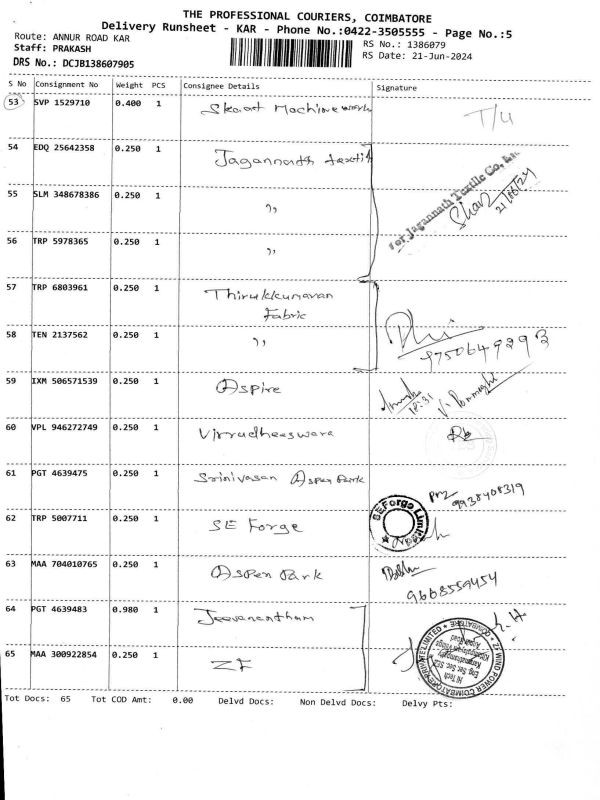 THE PROFESSIONAL COURIERS, COIMBATORE
Delivery Runsheet - KAR - Phone No.:0422-3505555 - Page No.:5
Route: ANNUR ROAD KAR
RS No.: 1386079
Staff: PRAKASH
RS Date: 21-Jun-2024
DRS No.: DCJB138607905
S No Consignment No Weight PCS Consignee Details Signature
53 SVP 1529710 0.400 1 Machine work T/U
54 EDQ 25642358 0.250 1 Jagannath textil
For Jagannath Textile Co.,
21/06/24
55 SLM 348678386 0.250 1 ,,
56 TRP 5978365 0.250 1 ,,
57 TRP 6803961 0.250 1 Thirukkumaran
Fabric
58 TEN 2137562 0.250 1 ,,
9750649293
59 IXM 506571539 0.250 1 Aspire
18:31
60 VPL 946272749 0.250 1 Virrudheeswara
61 PGT 4639475 0.250 1 Srinivasan Aspen Park
9938408319
62 TRP 5007711 0.250 1 SE Forge
SEForge Limited
63 MAA 704010765 0.250 1 Aspen Park
9668559454
64 PGT 4639483 0.980 1 Jeevanantham
65 MAA 300922854 0.250 1 ZF
ZF WIND POWER COIMBATORE PRIVATE LIMITED
Tot Docs: 65 Tot COD Amt: 0.00 Delvd Docs: Non Delvd Docs: Delvy Pts: